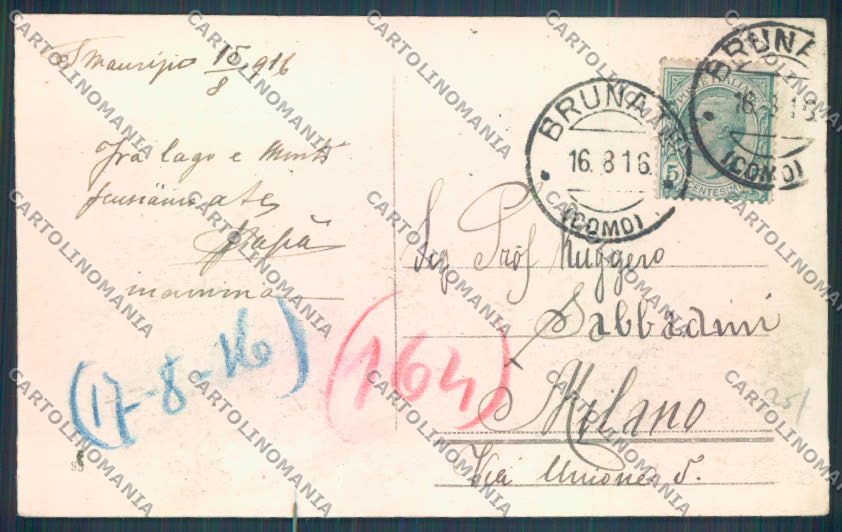 S Maurizio 15/8 916
Fra lago e monti
pensiamo a te
Papà
mamma
(17-8-16)
(164)
BRUNATE
16.8.16.
(COMO)
BRUNA
16.8.16
(COMO)
5
CENTESIMI
Sig Prof Ruggero
Sabbadini
Milano
Via Unione 5.
25/
CARTOLINOMANIA